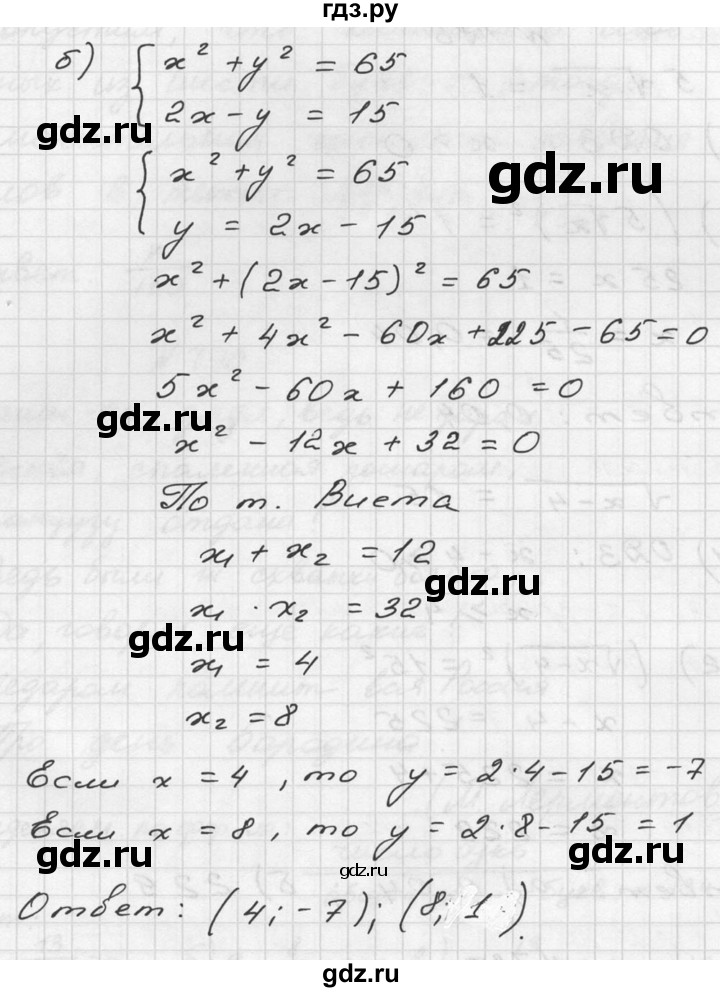 гдз.ру
б) { x² + y² = 65
2x - y = 15
gdz.ru
{ x² + y² = 65
gdz.ru
y = 2x - 15
x² + (2x - 15)² = 65
x² + 4x² - 60x + 225 - 65 = 0
5x² - 60x + 160 = 0
gdz.ru
x² - 12x + 32 = 0
По т. Виета
x₁ + x₂ = 12
gdz.ru
x₁ · x₂ = 32
gdz.ru
x₁ = 4
x₂ = 8
Если x = 4, то y = 2·4 - 15 = -7
Если x = 8, то y = 2·8 - 15 = 1
gdz.ru
gdz.ru
gdz.ru
Ответ: (4; -7); (8; 1).
gdz.ru